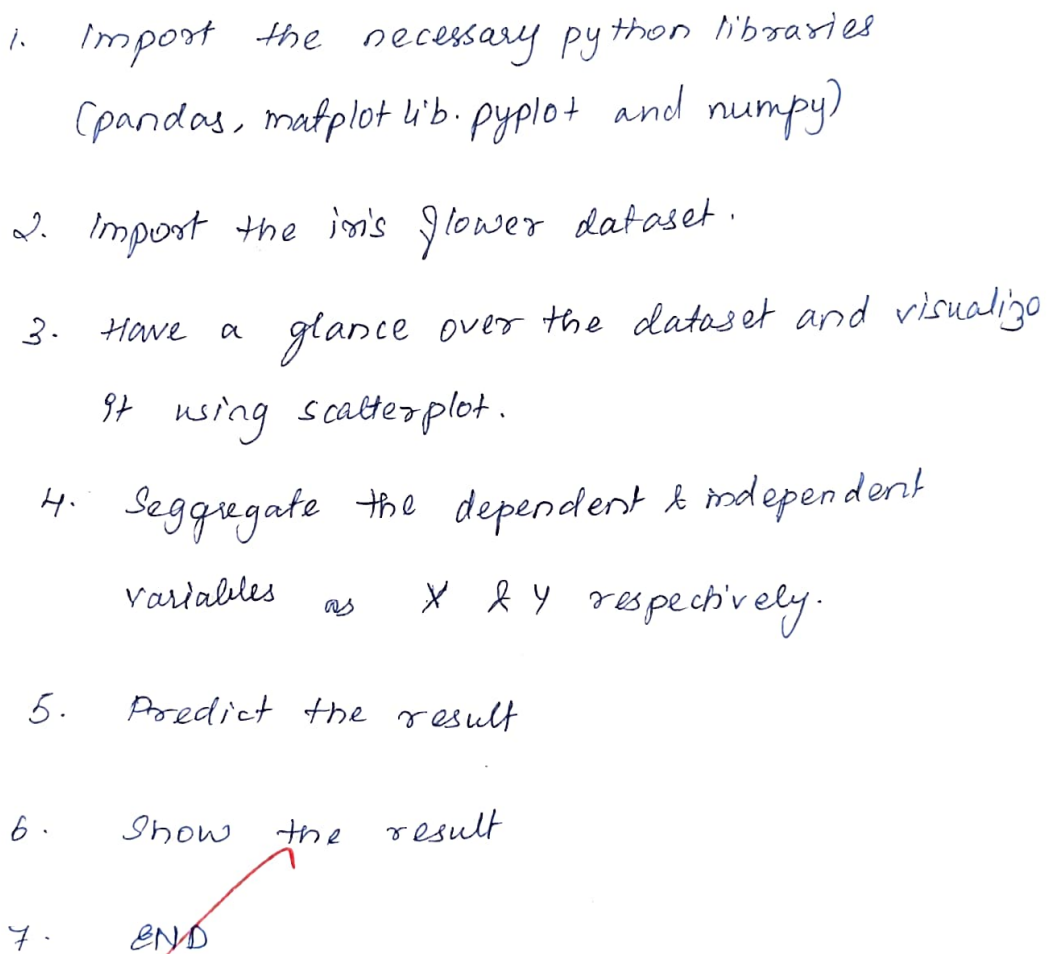 1. Import the necessary python libraries
(pandas, matplotlib.pyplot and numpy)
2. Import the iris flower dataset.
3. Have a glance over the dataset and visualize
it using scatterplot.
4. Seggregate the dependent & independent
variables as X & Y respectively.
5. Predict the result
6. Show the result
7. END